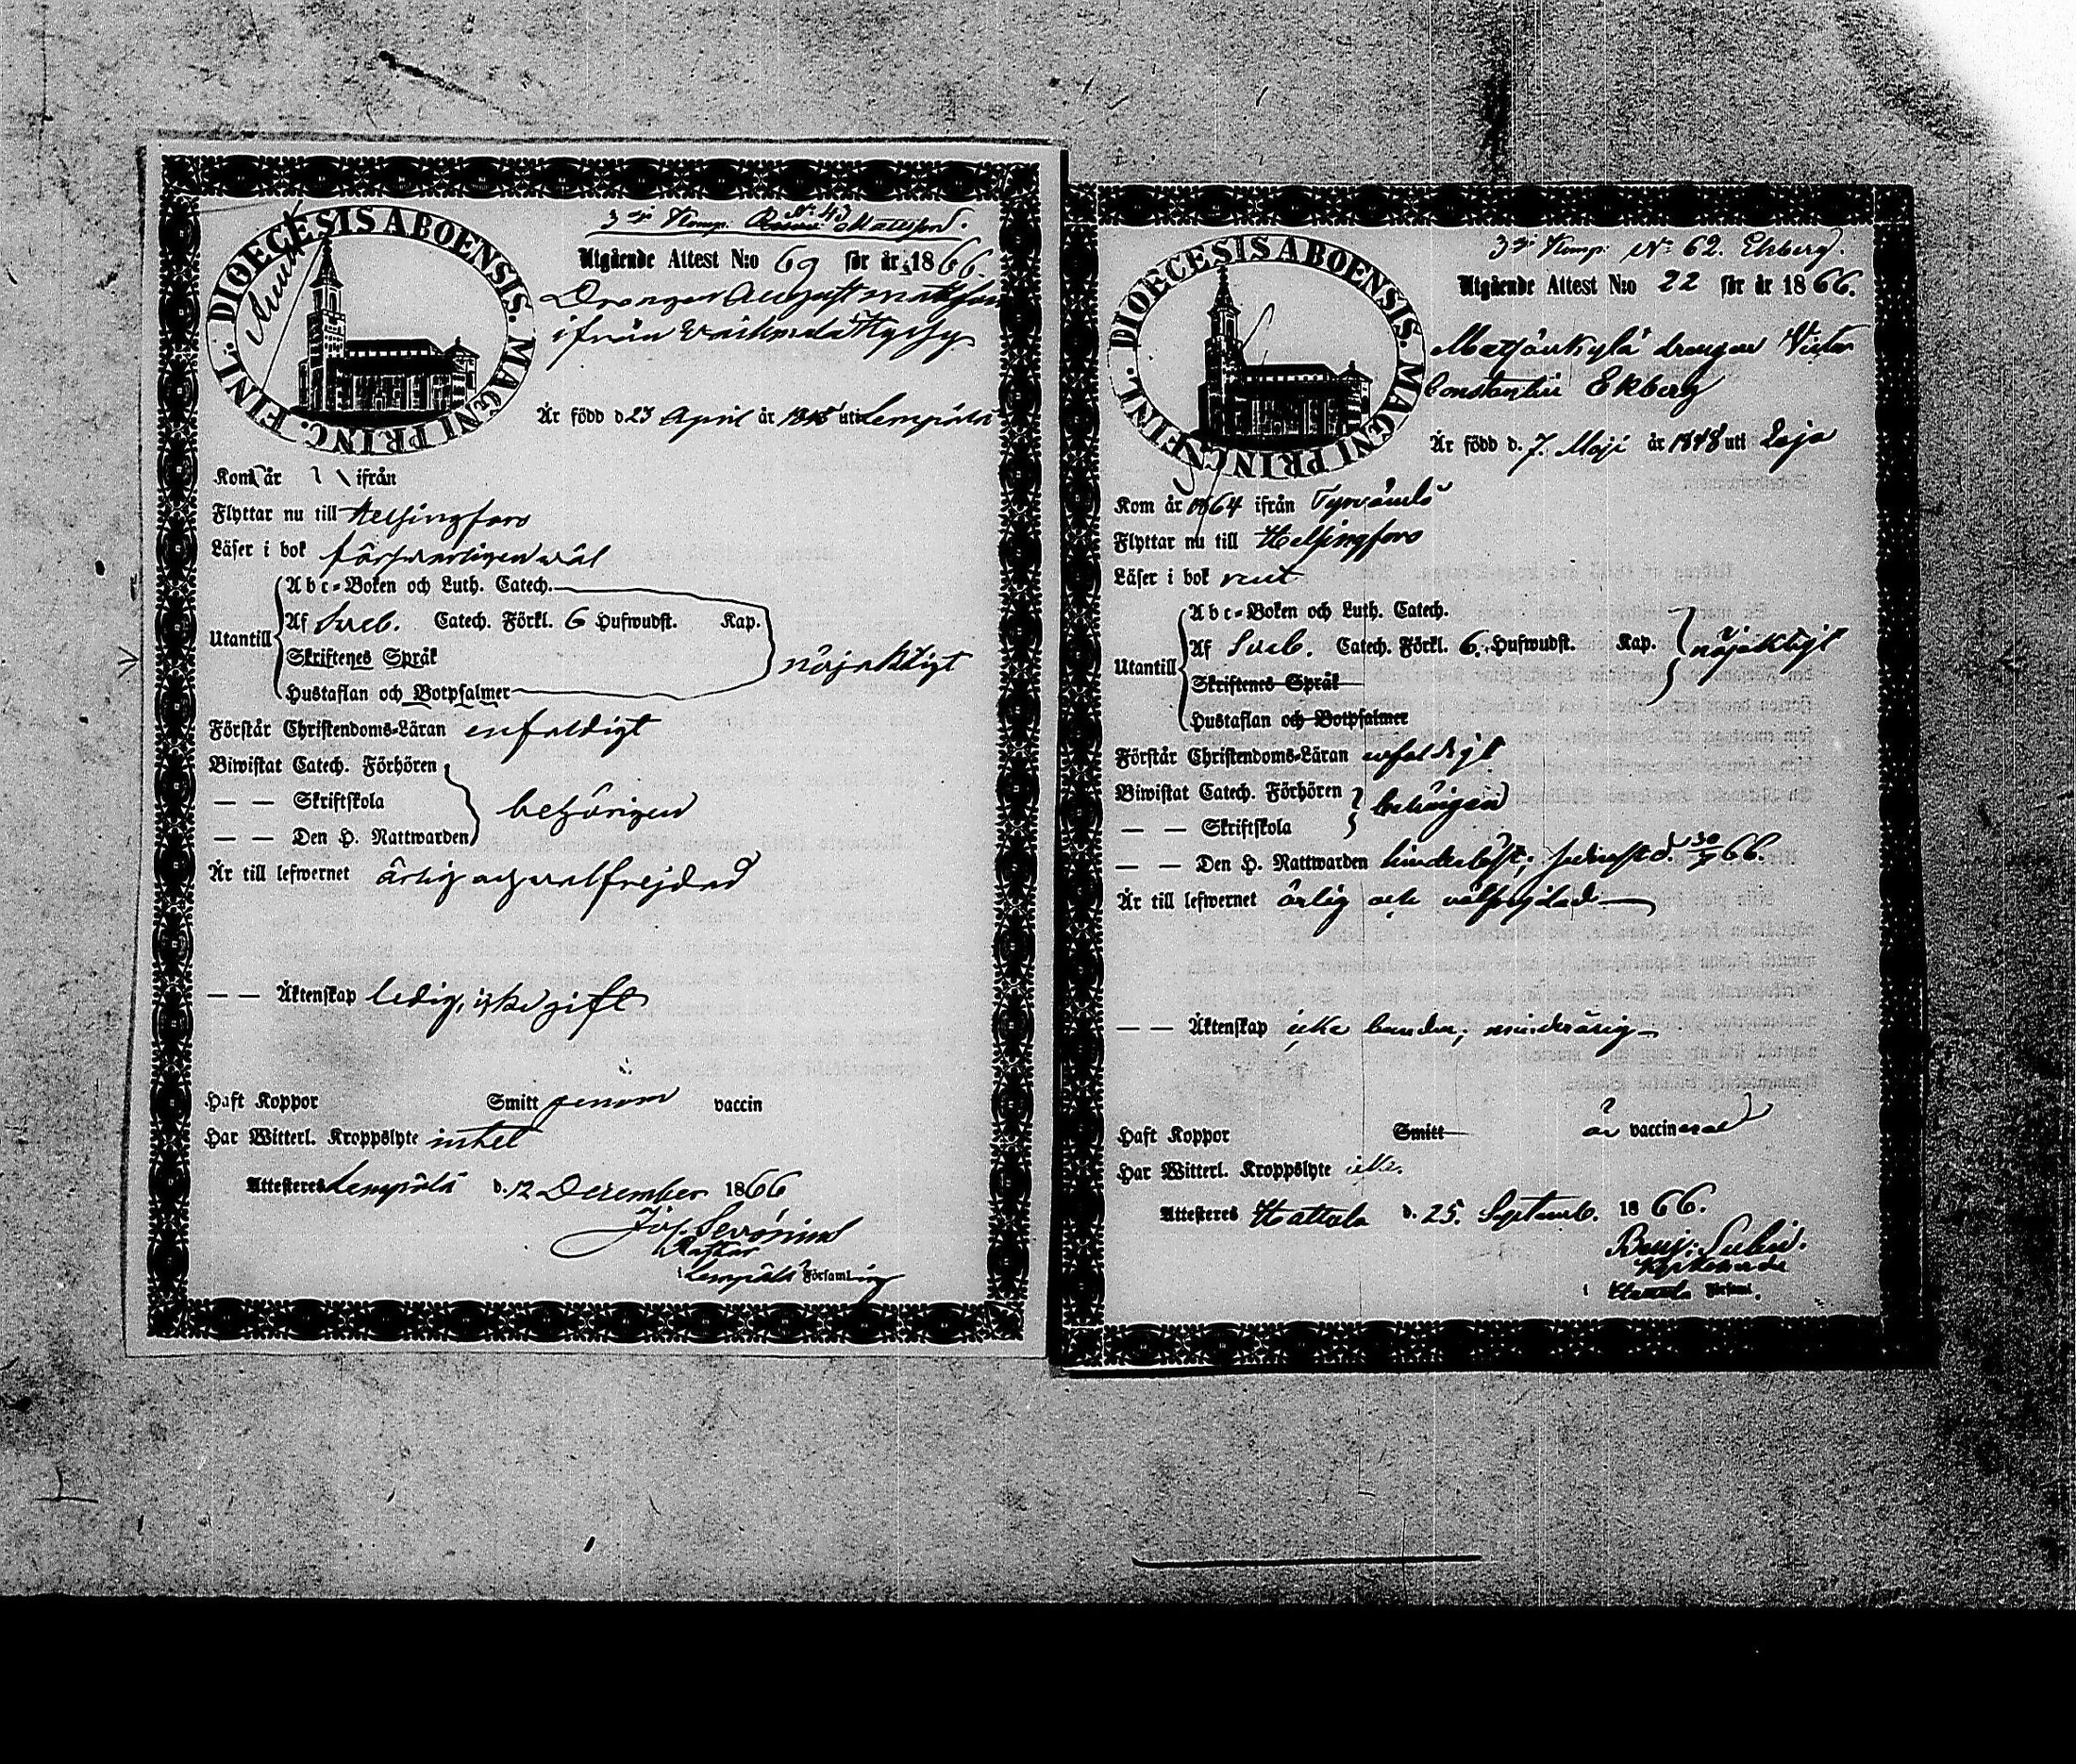 DIOECESIS ABOENSIS. MAGNI PRINC. FINL.
3dje Komp. No 43 Mattsson.
Utgående Attest N:o 69 för år 1866.
Drängen August Mattsson
ifrån
Är född d. 23 April år 1845 uti Lempälä
Kom år ifrån
Flyttar nu till Helsingfors
Läser i bok försvarligen väl
Utantill
Abc-Boken och Luth. Catech.
Af Sveb. Catech. Förkl. 6 Hufwudst. Kap.
Skriftenes Språk
Hustaflan och Botpsalmer
nöjaktigt
Förstår Christendoms-Läran enfaldigt
Biwistat Catech. Förhören
— — Skriftskola
— — Den H. Nattwarden
behörigen
Är till lefwernet ärlig och välfrejdad
— — Äktenskap ledig, icke gift
Haft Koppor Smitt genom vaccin
Har Witterl. Kroppslyte intet
Attesteres Lempälä d. 12 December 1866
Jos. Sevonius
i Lempälä Församling
DIOECESIS ABOENSIS. MAGNI PRINC. FINL.
3dje Komp. No 62. Ekberg.
Utgående Attest N:o 22 för år 1866.
drängen Victor
Constantin Ekberg
Är född d. 7. Maji år 1848 uti Loja
Kom år 1864 ifrån Tyrväntö
Flyttar nu till Helsingfors
Läser i bok rent
Utantill
Abc-Boken och Luth. Catech.
Af Sveb. Catech. Förkl. 6. Hufwudst. Kap.
Skriftenes Språk
Hustaflan och Botpsalmer
nöjaktigt
Förstår Christendoms-Läran enfaldigt
Biwistat Catech. Förhören
— — Skriftskola
behörigen
— — Den H. Nattwarden hinderlöst; sednast d. 66.
Är till lefwernet ärlig och välfrejdad
— — Äktenskap icke bunden; minderårig
Haft Koppor Smitt är vaccinerad
Har Witterl. Kroppslyte icke.
Attesteres Hattula d. 25. Septemb. 1866.
Kyrkoherde
i Hattula Församl.